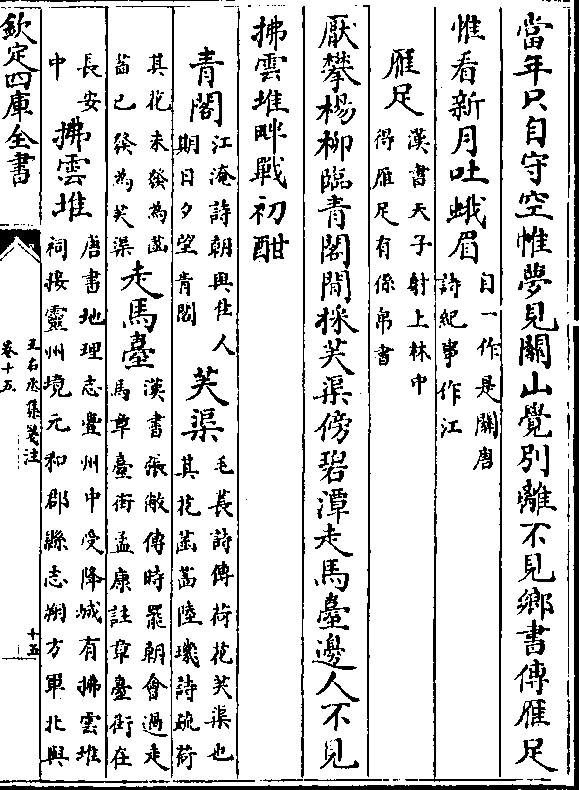 當年只自守空帷夢見關山覺別離不見鄉書傳雁足
惟看新月吐蛾眉自一作是關唐
詩紀事作江
雁足漢書天子射上林中
得雁足有係帛書
厭攀楊柳臨青閣閒採芙渠傍碧潭走馬臺邊人不見
拂雲堆畔戰初酣
青閣江淹詩朝與佳人
期日夕望青閣
芙渠毛萇詩傳荷花芙渠也
其花菡萏陸璣詩疏荷
其花未發為菡
萏已發為芙渠
走馬臺漢書張敞傳時罷朝會過走
馬章臺街孟康註章臺街在
長安
中
拂雲堆唐書地理志豐州中受降城有拂雲堆
祠接靈州境元和郡縣志朔方軍北與
欽定四庫全書
王右丞集箋注
卷十五
十五